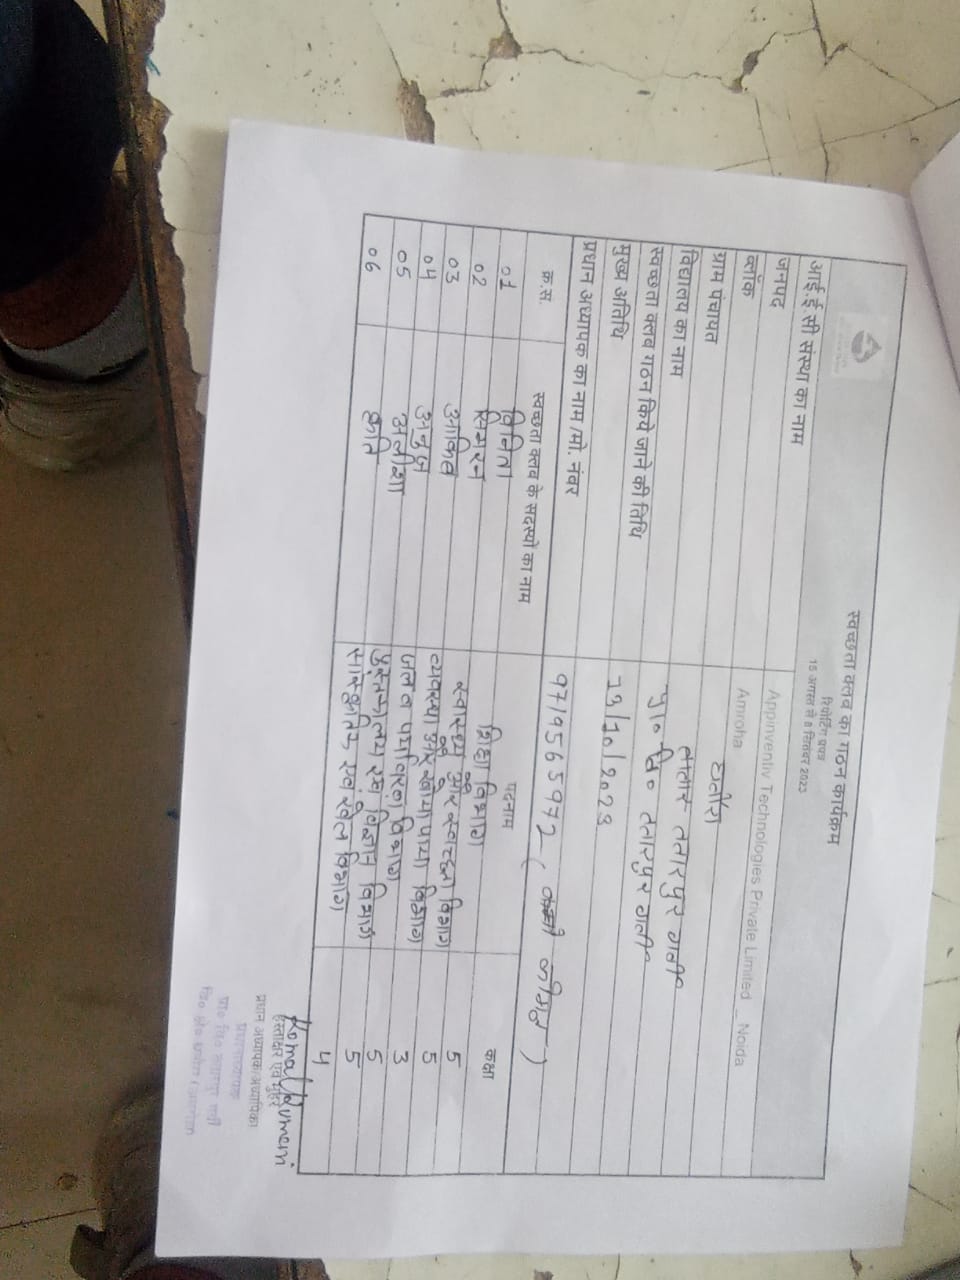 स्वच्छता क्लब का गठन कार्यक्रम
रिपोर्टिंग प्रपत्र
15 अगस्त से 8 सितंबर 2023
आई.ई.सी संस्था का नाम Appinventiv Technologies Private Limited _ Noida
जनपद Amroha
ब्लॉक
ग्राम पंचायत
विद्यालय का नाम
स्वच्छता क्लब गठन किये जाने की तिथि /10/2023
मुख्य अतिथि
प्रधान अध्यापक का नाम /मो. नंबर 9719565972 ( कोमल )
क्र.स. स्वच्छता क्लब के सदस्यों का नाम पदनाम कक्षा
01 शिक्षा विभाग 5
02 सिमरन स्वास्थ्य और स्वच्छता विभाग 5
03 व्यवस्था और विभाग 3
04 अनुज जल व पर्यावरण विभाग 5
05 अलीशा पुस्तकालय एवं विज्ञान विभाग 5
06 सांस्कृतिक एवं खेल विभाग 4
Komal Kumari
हस्ताक्षर एवं मुहर
प्रधान अध्यापक/अध्यापिका